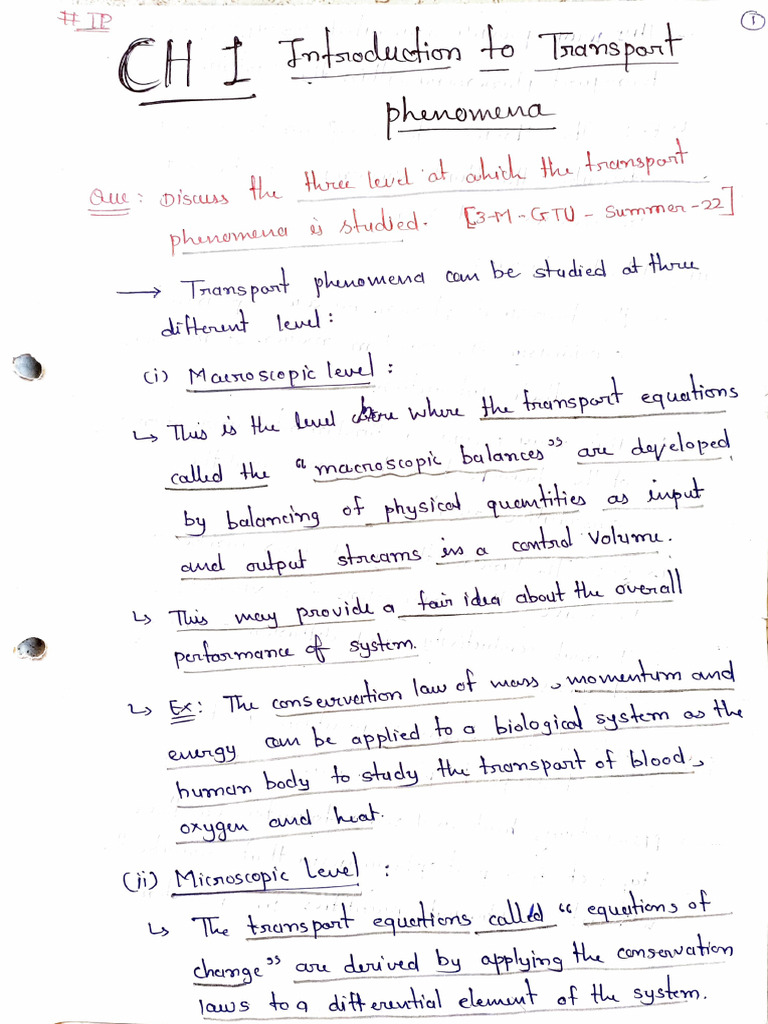 # IP
1
CH 1 Introduction to Transport
phenomena
Que: Discuss the three level at which the transport
phenomena is studied. [3-M-GTU-Summer-22]
→ Transport phenomena can be studied at three
different level:
(i) Macroscopic level:
↳ This is the level where the transport equations
called the "macroscopic balances" are developed
by balancing of physical quantities as input
and output streams in a control volume.
↳ This may provide a fair idea about the overall
performance of system.
↳ Ex: The conservation law of mass, momentum and
energy can be applied to a biological system as the
human body to study the transport of blood,
oxygen and heat.
(ii) Microscopic Level:
↳ The transport equations called "equations of
change" are derived by applying the conservation
laws to a differential element of the system.